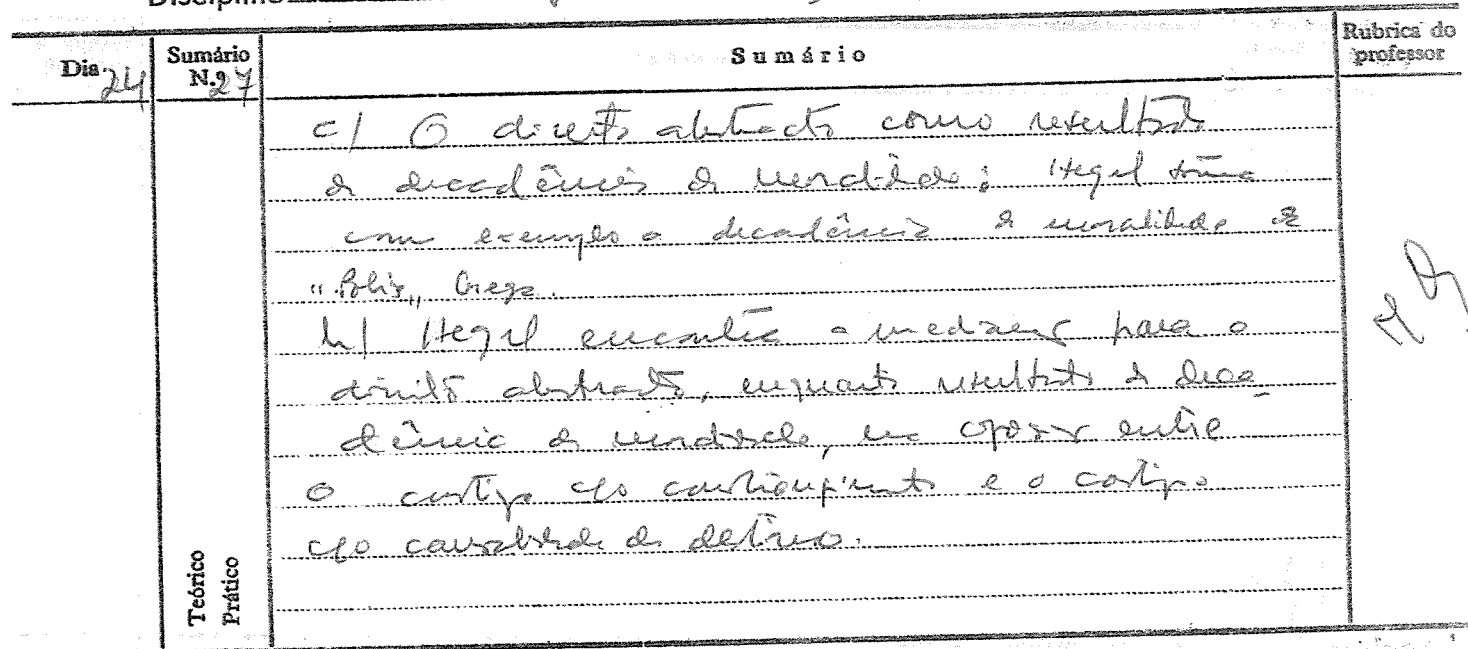 Disciplina
Dia 24
Sumário N.º 27
Sumário
Rúbrica do professor
c/ O direito abstracto como resultado
da decadência da moralidade; Hegel toma
como exemplo a decadência da moralidade da
"Polis" Grega.
h/ Hegel encontra a mediação para o
direito abstracto, enquanto resultado da deca-
dência da moralidade, na oposição entre
o castigo c/o constrangimento e o castigo
c/o causalidade do destino.
Teórico
Prático